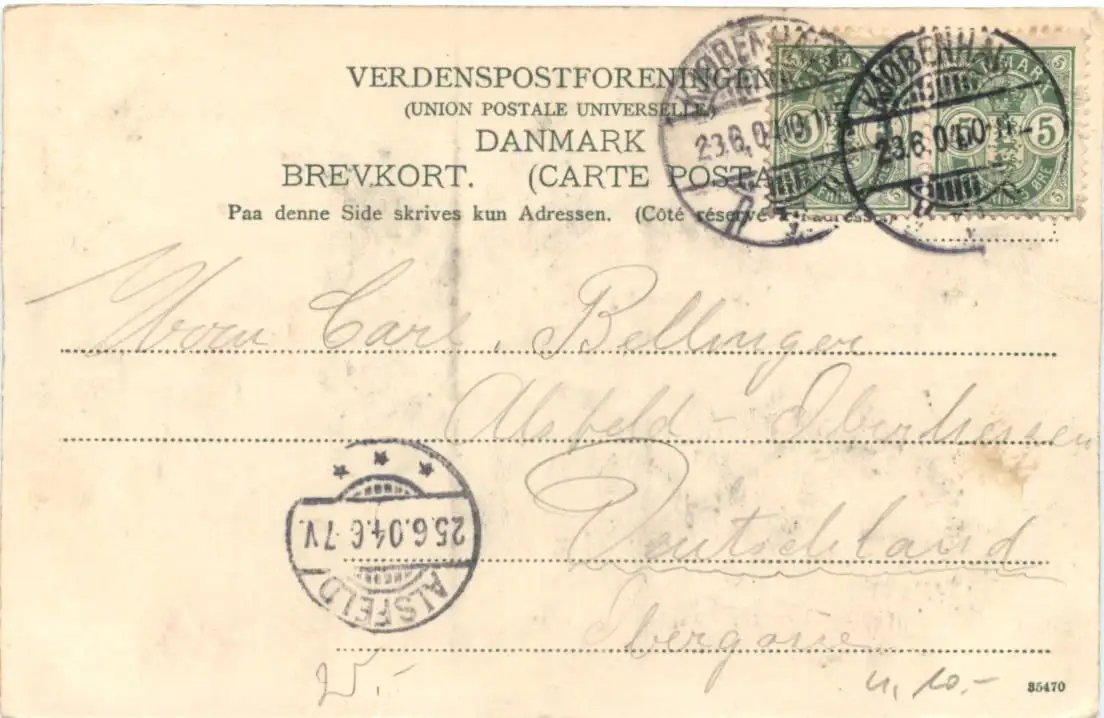 VERDENSPOSTFORENINGEN
(UNION POSTALE UNIVERSELLE)
DANMARK
BREVKORT. (CARTE POSTA
Paa denne Side skrives kun Adressen. (Côté réservé à l'adresse)
KJØBENHAVN
23.6.04.10-11
KJØBENHAVN
23.6.04.10-11
5
5
Herrn Carl. Bellinger
Alsfeld - Oberhessen
Deutschland
Obergasse
25.6.04.6-7V.
ALSFELD
35470